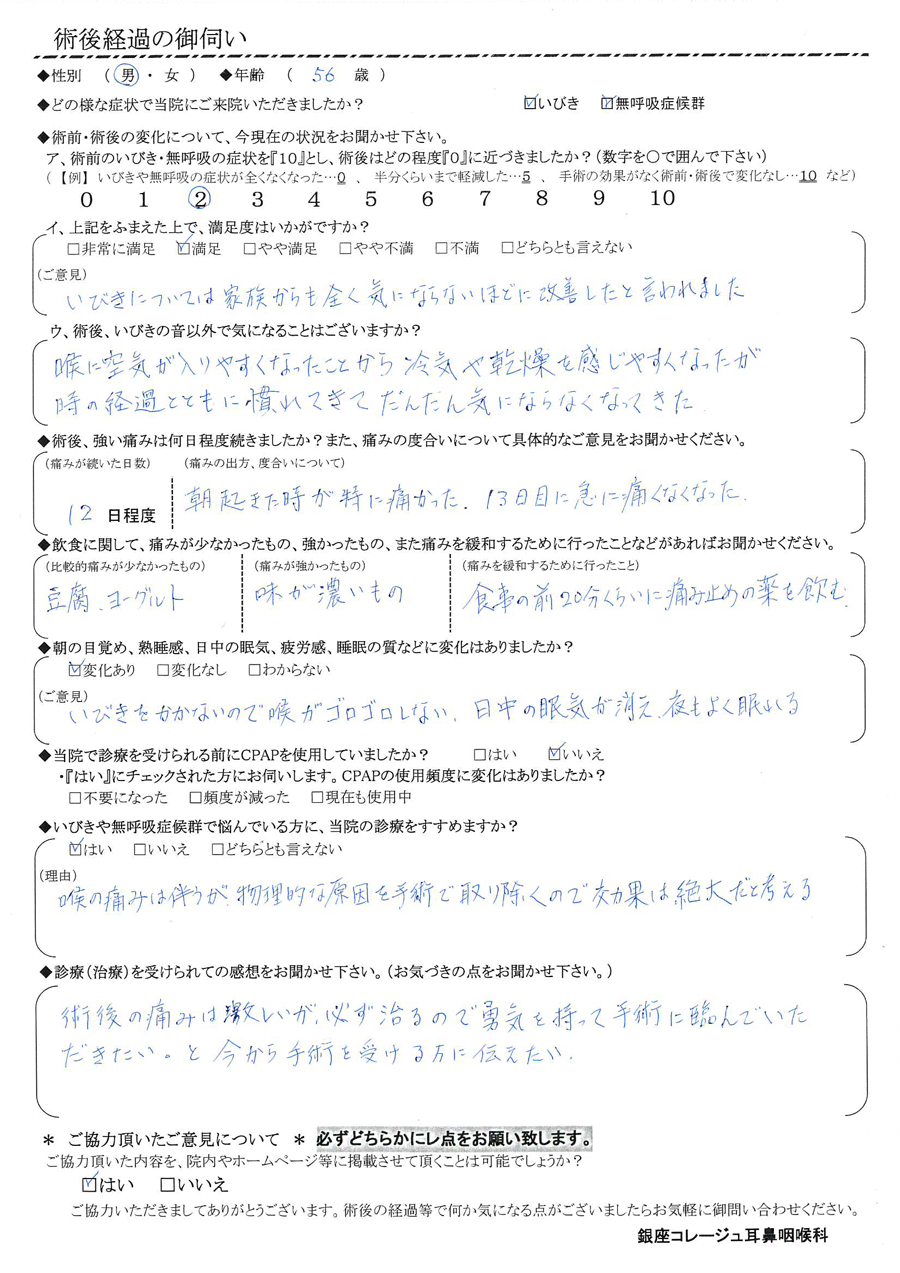 術後経過の御伺い
◆性別 ( 男 ・ 女 ) ◆年齢 ( 56 歳 )
◆どの様な症状で当院にご来院いただきましたか? ☑いびき ☑無呼吸症候群
◆術前・術後の変化について、今現在の状況をお聞かせ下さい。
ア、術前のいびき・無呼吸の症状を『10』とし、術後はどの程度『0』に近づきましたか?(数字を〇で囲んで下さい)
(【例】いびきや無呼吸の症状が全くなくなった…0 、 半分くらいまで軽減した…5 、 手術の効果がなく術前・術後で変化なし…10 など)
0 1 2 3 4 5 6 7 8 9 10
イ、上記をふまえた上で、満足度はいかがですか?
□非常に満足 ☑満足 □やや満足 □やや不満 □不満 □どちらとも言えない
(ご意見)
いびきについては家族からも全く気にならないほどに改善したと言われました
ウ、術後、いびきの音以外で気になることはございますか?
喉に空気が入りやすくなったことから冷気や乾燥を感じやすくなったが
時の経過とともに慣れてきてだんだん気にならなくなってきた.
◆術後、強い痛みは何日程度続きましたか?また、痛みの度合いについて具体的なご意見をお聞かせください。
(痛みが続いた日数) (痛みの出方、度合いについて)
12 日程度 朝起きた時が特に痛かった. 13日目に急に痛くなくなった.
◆飲食に関して、痛みが少なかったもの、強かったもの、また痛みを緩和するために行ったことなどがあればお聞かせください。
(比較的痛みが少なかったもの) (痛みが強かったもの) (痛みを緩和するために行ったこと)
豆腐、ヨーグルト 味が濃いもの 食事の前20分くらいに痛み止めの薬を飲む.
◆朝の目覚め、熟睡感、日中の眠気、疲労感、睡眠の質などに変化はありましたか?
☑変化あり □変化なし □わからない
(ご意見)
いびきをかかないので喉がゴロゴロしない. 日中の眠気が消え、夜もよく眠れる
◆当院で診療を受けられる前にCPAPを使用していましたか? □はい ☑いいえ
・『はい』にチェックされた方にお伺いします。CPAPの使用頻度に変化はありましたか?
□不要になった □頻度が減った □現在も使用中
◆いびきや無呼吸症候群で悩んでいる方に、当院の診療をすすめますか?
☑はい □いいえ □どちらとも言えない
(理由)
喉の痛みは伴うが、物理的な原因を手術で取り除くので効果は絶大だと考える
◆診療(治療)を受けられての感想をお聞かせ下さい。(お気づきの点をお聞かせ下さい。)
術後の痛みは激しいが、必ず治るので勇気を持って手術に臨んでいた
だきたい。と今から手術を受ける方に伝えたい.
* ご協力頂いたご意見について * 必ずどちらかにレ点をお願い致します。
ご協力頂いた内容を、院内やホームページ等に掲載させて頂くことは可能でしょうか?
☑はい □いいえ
ご協力いただきましてありがとうございます。術後の経過等で何か気になる点がございましたらお気軽に御問い合わせください。
銀座コレージュ耳鼻咽喉科